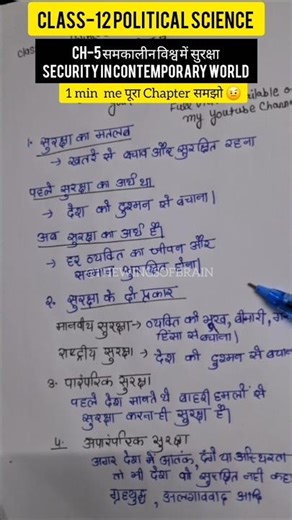 CLASS-12 POLITICAL SCIENCE
CH-5 समकालीन विश्व में सुरक्षा
SECURITY IN CONTEMPORARY WORLD
1 min me पूरा Chapter समझो 😉
my youtube Chann
1. सुरक्षा का मतलब
→ खतरे से बचाव और सुरक्षित रहना
पहले सुरक्षा का अर्थ था
→ देश को दुश्मन से बचाना।
अब सुरक्षा का अर्थ है।
→ हर व्यक्ति का जीवन और
सम्मान सुरक्षित होना।
२. सुरक्षा के दो प्रकार
मानवीय सुरक्षा → व्यक्ति को भूख, बीमारी,
हिंसा से बचाना।
राष्ट्रीय सुरक्षा → देश को दुश्मन से बचाना
3. पारंपरिक सुरक्षा
पहले देश मानते थे बाहरी हमलों से
सुरक्षा करना ही सुरक्षा है।
4. अपारंपरिक सुरक्षा
अगर देश में आतंक, दंगे या अस्थिरता
तो भी देश को सुरक्षित नहीं कहा
गृहयुद्ध, अलगाववाद आदि